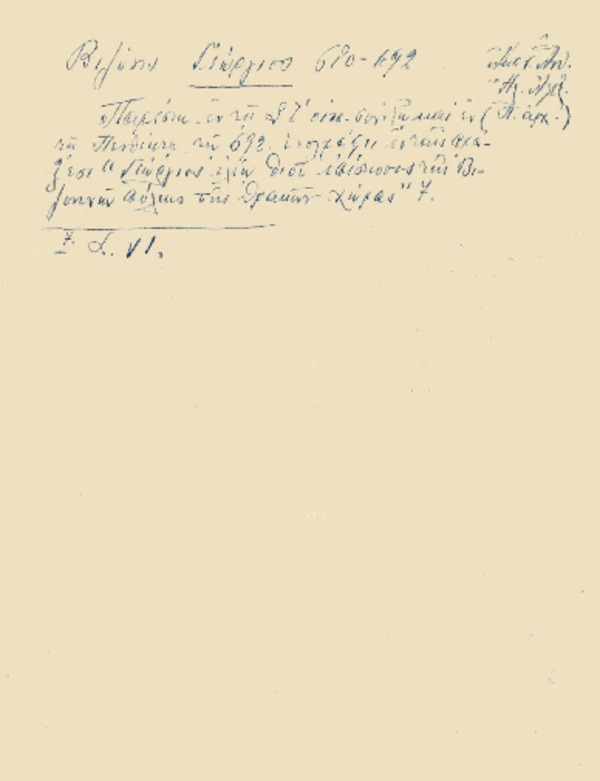 Βιζύης Γεώργιος 680-692
Παρέστη ἐν τῇ ΣΤ' οἰκ. συνόδῳ καὶ ἐν
τῇ Πενθέκτῃ τῷ 692. ὑπογράφει ἐν ταῖς πρά-
ξεσι "Γεώργιος ἐλέῳ Θεοῦ ἐπίσκοπος τῆς Βι-
ζυηνῶν πόλεως τῆς Θρακῶν χώρας" 7.
7. VI.